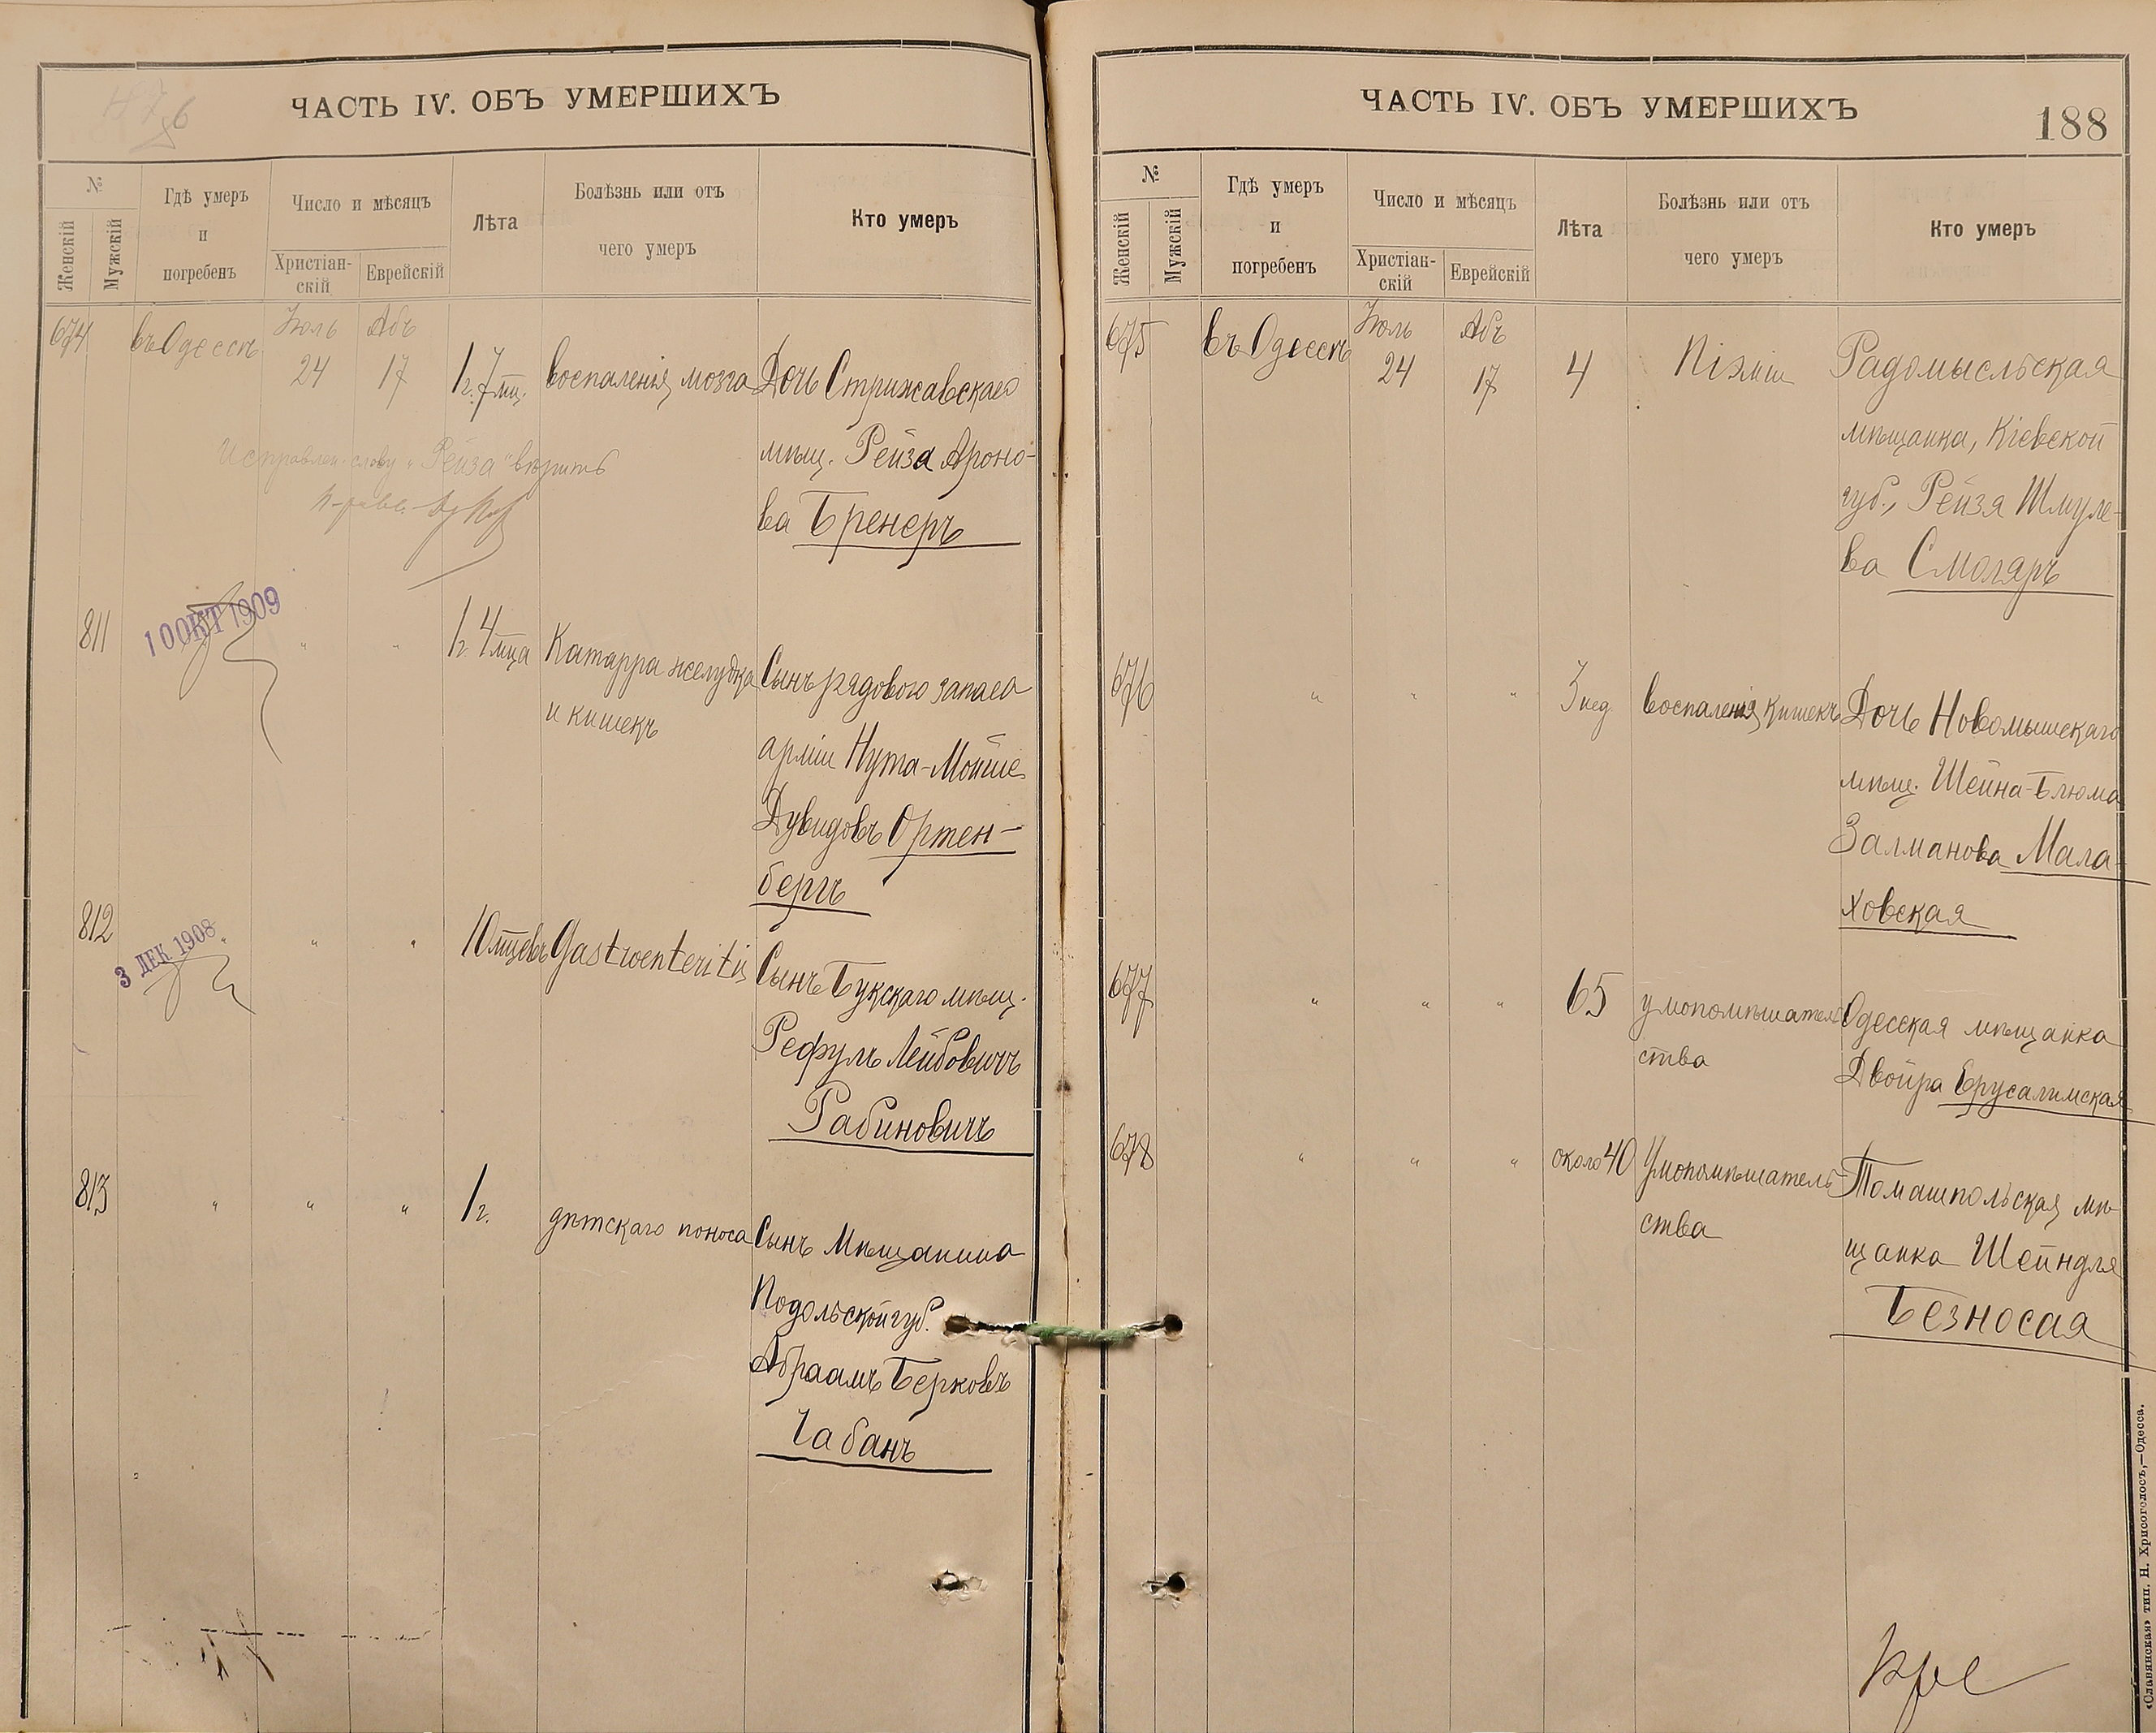 ЧАСТЬ IV. ОБЪ УМЕРШИХЪ
№
Женскій
Мужскій
Гдѣ умеръ
и
погребенъ
Число и мѣсяцъ
Христіан-
скій
Еврейскій
Лѣта
Болѣзнь или отъ
чего умеръ
Кто умеръ
674
въ Одессѣ
Іюль
24
Абъ
17
1 г. 7 мц.
воспаленія мозга
Дочь Стрижавскаго
мѣщ. Рейза Ароно-
ва Бренеръ
Исправлен. слову "Рейза" вѣрить
811
10 ОКТ 1909
" "
1 г. 4 мца
Катарра желудка
и кишекъ
Сынъ рядового запаса
арміи Нута-Мойше
Дувидовъ Ортен-
бергъ
812
3 ДЕК 1908
" " "
10 мцевъ
Gastroenteritis
Сынъ Букскаго мѣщ.
Рефулъ Лейбовичъ
Рабиновичъ
813
" " "
1 г.
дѣтскаго поноса
Сынъ Мѣщанина
Подольской губ.
Абраамъ Берковъ
Чабанъ
ЧАСТЬ IV. ОБЪ УМЕРШИХЪ
188
№
Женскій
Мужскій
Гдѣ умеръ
и
погребенъ
Число и мѣсяцъ
Христіан-
скій
Еврейскій
Лѣта
Болѣзнь или отъ
чего умеръ
Кто умеръ
675
въ Одессѣ
Іюль
24
Абъ
17
4
Радомысльская
мѣщанка, Кіевской
губ., Рейзя Шмуле-
ва Смоляръ
676
" " "
3 нед.
воспаленія кишекъ
Дочь Новомышскаго
мѣщ. Шейна-Блюма
Залманова Мала-
ховская
677
" " "
65
умопомѣшатель
ства
Одесская мѣщанка
Двойра Ерусалимская
678
" " "
около 40
Умопомѣшатель-
ства
Томашпольская мѣ-
щанка Шейндля
Безносая
«Славянская» тип. Н. Хрисогелосъ,—Одесса.